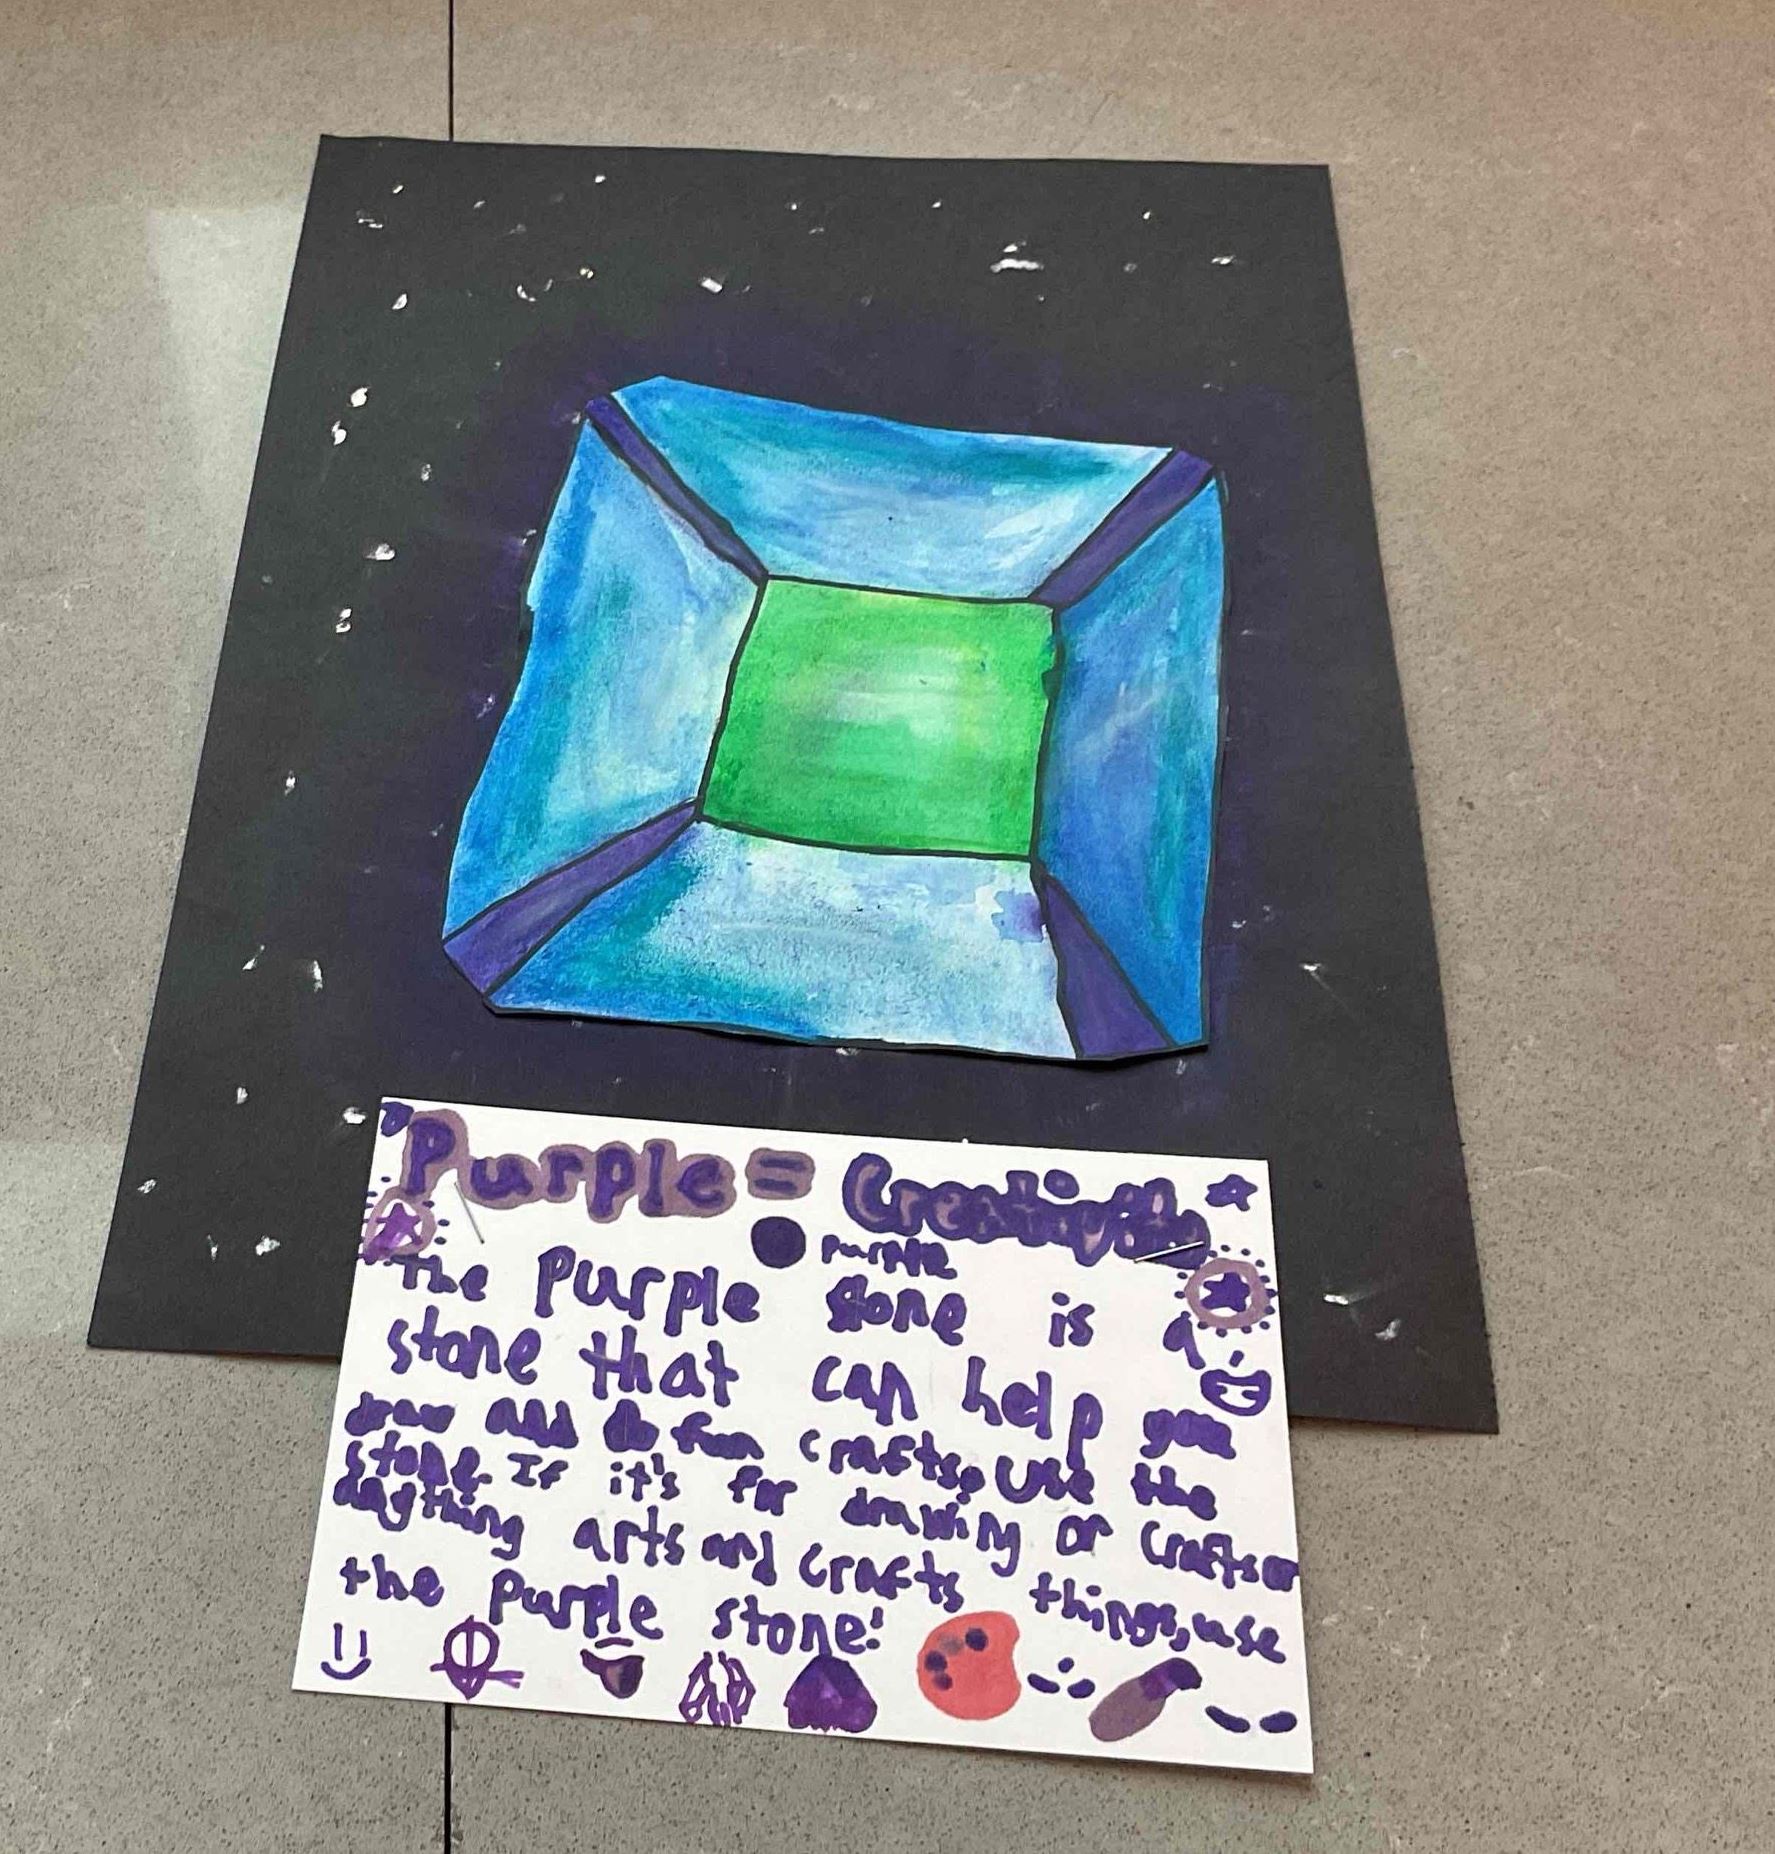 Purple = Creativity
purple
The purple stone is a
stone that can help you
draw and do fun crafts, use the
stone. If it's for drawing or crafts or
anything arts and crafts things, use
the purple stone!